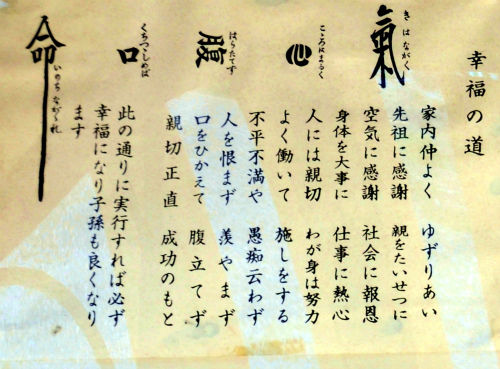 幸福の道
氣 きはながく
心 こゝろはまるく
腹 はらたてず
口 くちつゝしめば
命 いのちながゝれ
家内仲よく ゆずりあい
先祖に感謝 親をたいせつに
空気に感謝 社会に報恩
身体を大事に 仕事に熱心
人には親切 わが身は努力
よく働いて 施しをする
不平不満や 愚痴云わず
人を恨まず 羨やまず
口をひかえて 腹立てず
親切正直 成功のもと
此の通りに実行すれば必ず
幸福になり子孫も良くなり
ます